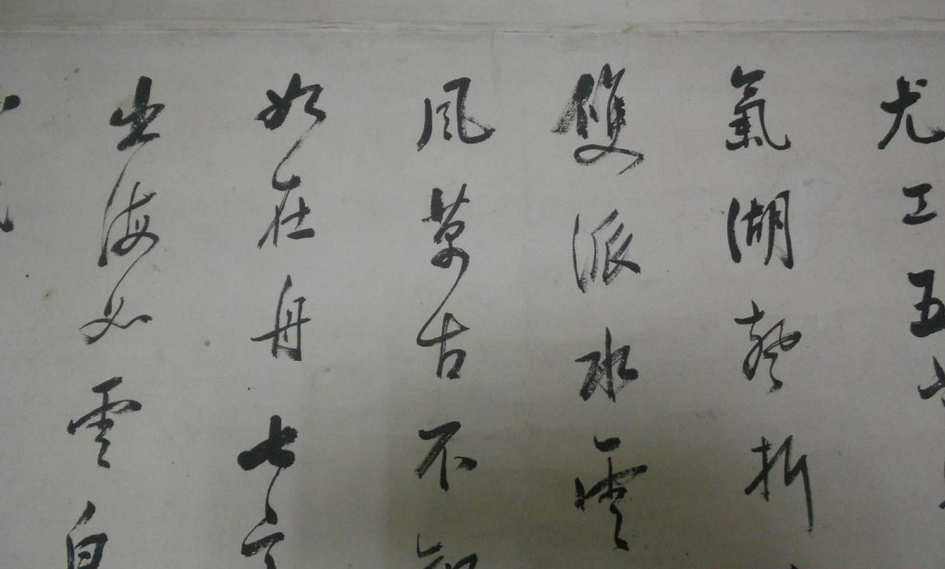 尤工五
氣湖聲折
雙派水雲
風草古不
如在舟七言
出海必雲自